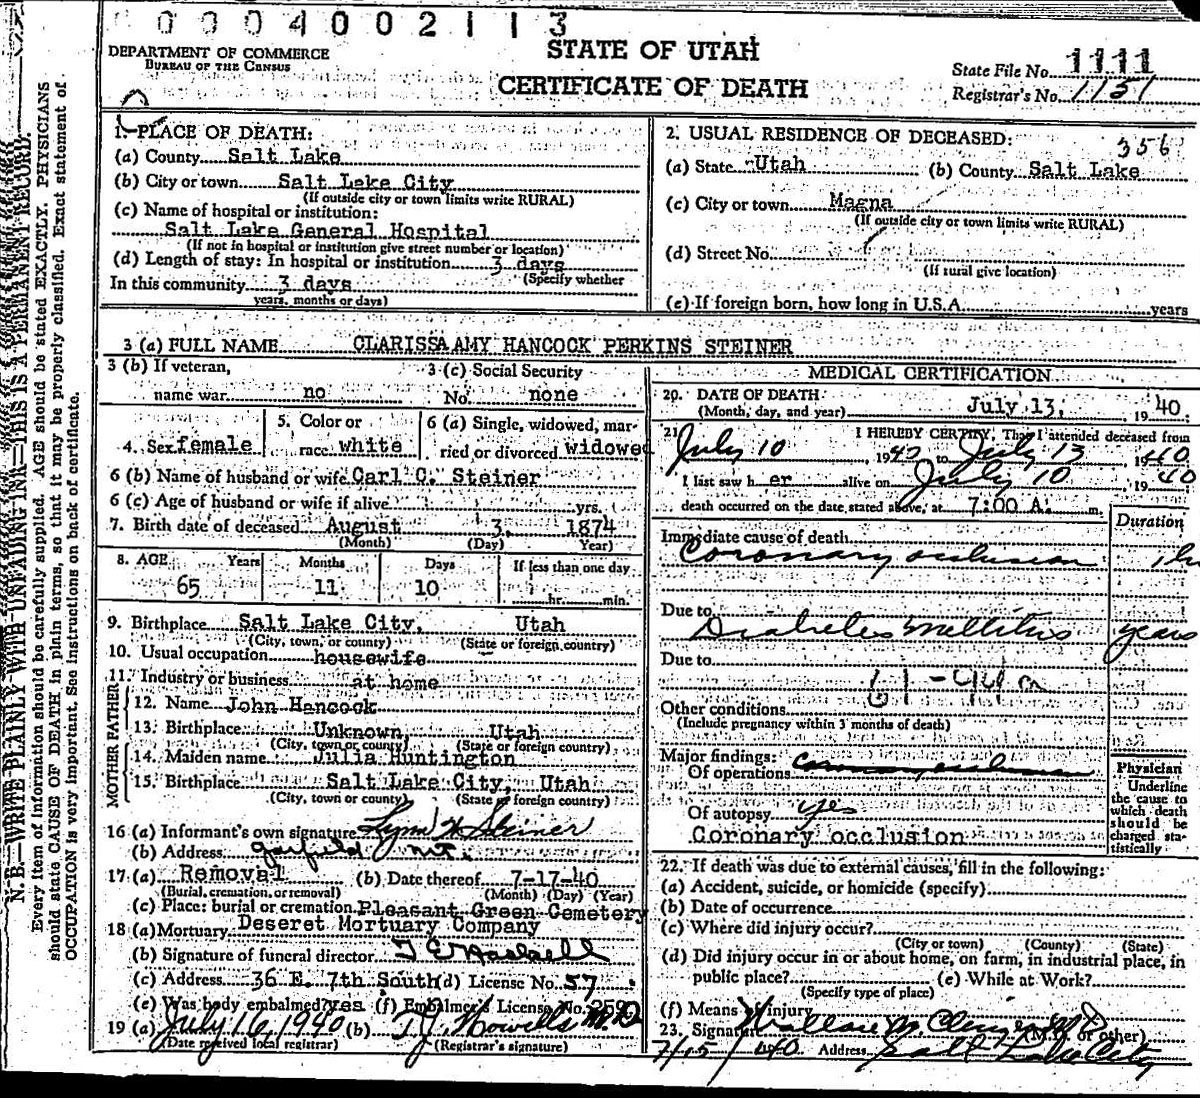 0004002113
DEPARTMENT OF COMMERCE
BUREAU OF THE CENSUS
STATE OF UTAH
CERTIFICATE OF DEATH
State File No. 1111
Registrar's No. 1151
N. B.—WRITE PLAINLY WITH UNFADING INK—THIS IS A PERMANENT RECORD.
Every item of information should be carefully supplied. AGE should be stated EXACTLY. PHYSICIANS
should state CAUSE OF DEATH in plain terms, so that it may be properly classified. Exact statement of
OCCUPATION is very important. See instructions on back of certificate.
1. PLACE OF DEATH:
(a) County Salt Lake
(b) City or town Salt Lake City
(If outside city or town limits write RURAL)
(c) Name of hospital or institution:
Salt Lake General Hospital
(If not in hospital or institution give street number or location)
(d) Length of stay: In hospital or institution 3 days
(Specify whether
In this community 3 days
years, months or days)
2. USUAL RESIDENCE OF DECEASED: 356
(a) State Utah (b) County Salt Lake
(c) City or town Magna
(If outside city or town limits write RURAL)
(d) Street No.
(If rural give location)
(e) If foreign born, how long in U.S.A. years
3 (a) FULL NAME CLARISSA AMY HANCOCK PERKINS STEINER
3 (b) If veteran, 3 (c) Social Security
name war. no No. none
4. Sex female 5. Color or race white 6 (a) Single, widowed, married or divorced widowed
6 (b) Name of husband or wife Carl C. Steiner
6 (c) Age of husband or wife if alive yrs.
7. Birth date of deceased August 3, 1874
(Month) (Day) (Year)
8. AGE Years Months Days If less than one day
65 11 10 hr. min.
9. Birthplace Salt Lake City, Utah
(City, town, or county) (State or foreign country)
10. Usual occupation housewife
11. Industry or business at home
FATHER
12. Name John Hancock
13. Birthplace Unknown, Utah
(City, town or county) (State or foreign country)
MOTHER
14. Maiden name Julia Huntington
15. Birthplace Salt Lake City, Utah
(City, town or county) (State or foreign country)
16 (a) Informant's own signature Lynn H Steiner
(b) Address Garfield
17. (a) Removal (b) Date thereof 7-17-40
(Burial, cremation, or removal) (Month) (Day) (Year)
(c) Place: burial or cremation Pleasant Green Cemetery
18 (a) Mortuary Deseret Mortuary Company
(b) Signature of funeral director
(c) Address 36 E. 7th South (d) License No. 57
(e) Was body embalmed? yes (f) Embalmer's License No.
19 (a) July 16, 1940 (b) T.J. Howells M.D.
(Date received local registrar) (Registrar's signature)
MEDICAL CERTIFICATION
20. DATE OF DEATH:
(Month, day, and year) July 13, 1940.
21. I HEREBY CERTIFY, That I attended deceased from
July 10 1940 to July 13 1940
I last saw her alive on July 10 1940
death occurred on the date stated above, at 7:00 A. m.
Duration
Immediate cause of death
Coronary occlusion
Due to
Diabetes mellitus years
Due to
61-94a
Other conditions
(Include pregnancy within 3 months of death)
Major findings:
Of operations Coronary occlusion
Of autopsy yes
Coronary occlusion
Physician
Underline
the cause to
which death
should be
charged sta-
tistically
22. If death was due to external causes, fill in the following:
(a) Accident, suicide, or homicide (specify)
(b) Date of occurrence
(c) Where did injury occur?
(City or town) (County) (State)
(d) Did injury occur in or about home, on farm, in industrial place, in
public place? (e) While at Work?
(Specify type of place)
(f) Means of injury
23. Signature Wallace M. (M.D. or other)
7/15/1940 Address Salt Lake City